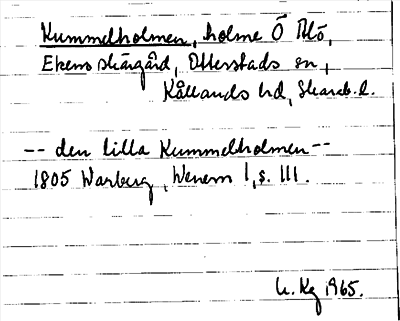 Kummelholmen, holme Ö Blö,
Ekens skärgård, Otterstads sn,
Kållands hd, Skarab.l.
-- den lilla Kummelholmen --
1805 Warberg, Wenern 1, s. III.
U. Kg 1965.